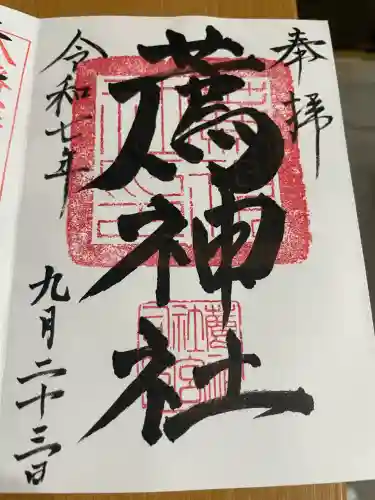 奉拝
薦神社
令和七年
九月二十三日